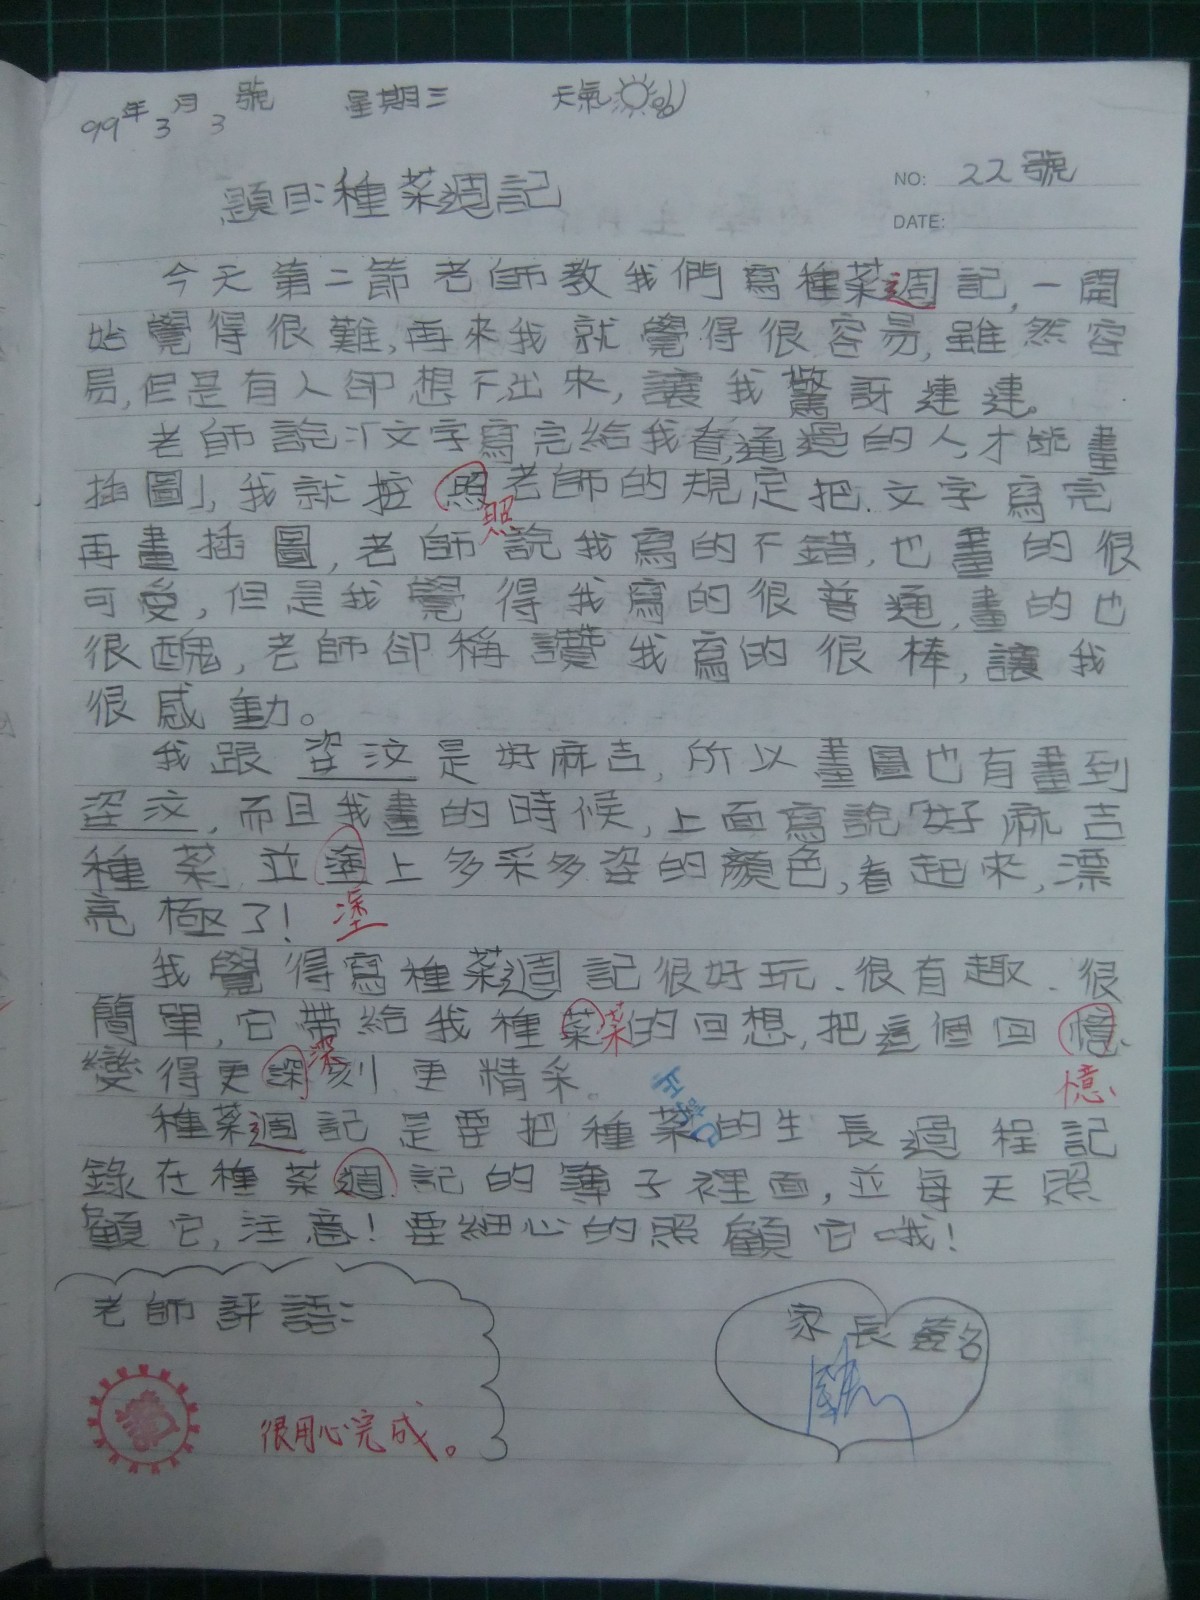 99年3月3號 星期三 天氣
題目:種菜週記
NO: 22號
DATE:
今天第二節老師教我們寫種菜週記,一開
始覺得很難,再來我就覺得很容易,雖然容
易,但是有人卻想不出來,讓我驚訝連連。
老師說:「文字寫完給我看,通過的人,才能畫
插圖」,我就按照老師的規定把文字寫完
照
再畫插圖,老師說我寫的不錯,也畫的很
可愛,但是我覺得我寫的很普通,畫的也
很醜,老師卻稱讚我寫的很棒,讓我
很感動。
我跟姿汶是好麻吉,所以畫圖也有畫到
姿汶,而且我畫的時候,上面寫說「好麻吉
種菜,並塗上多采多姿的顏色,看起來,漂
亮極了!
塗
我覺得寫種菜週記很好玩、很有趣、很
簡單,它帶給我種菜菜的回想,把這個回憶
深
變得更深刻、更精采。
憶
訂正
種菜週記是要把種菜的生長過程記
錄在種菜週記的簿子裡面,並每天照
顧它,注意!要細心的照顧它哦!
老師評語:
家長簽名
很用心完成。